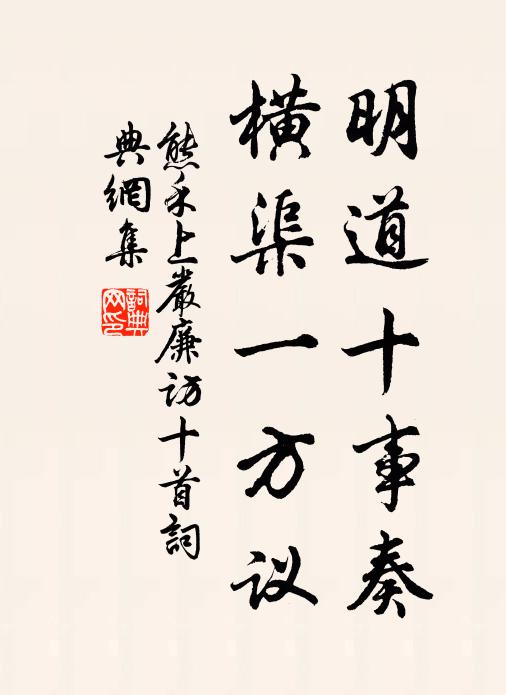 明道十事奏
横渠一方议
熊禾上嚴廉访十首詞
典網集
詞典網印